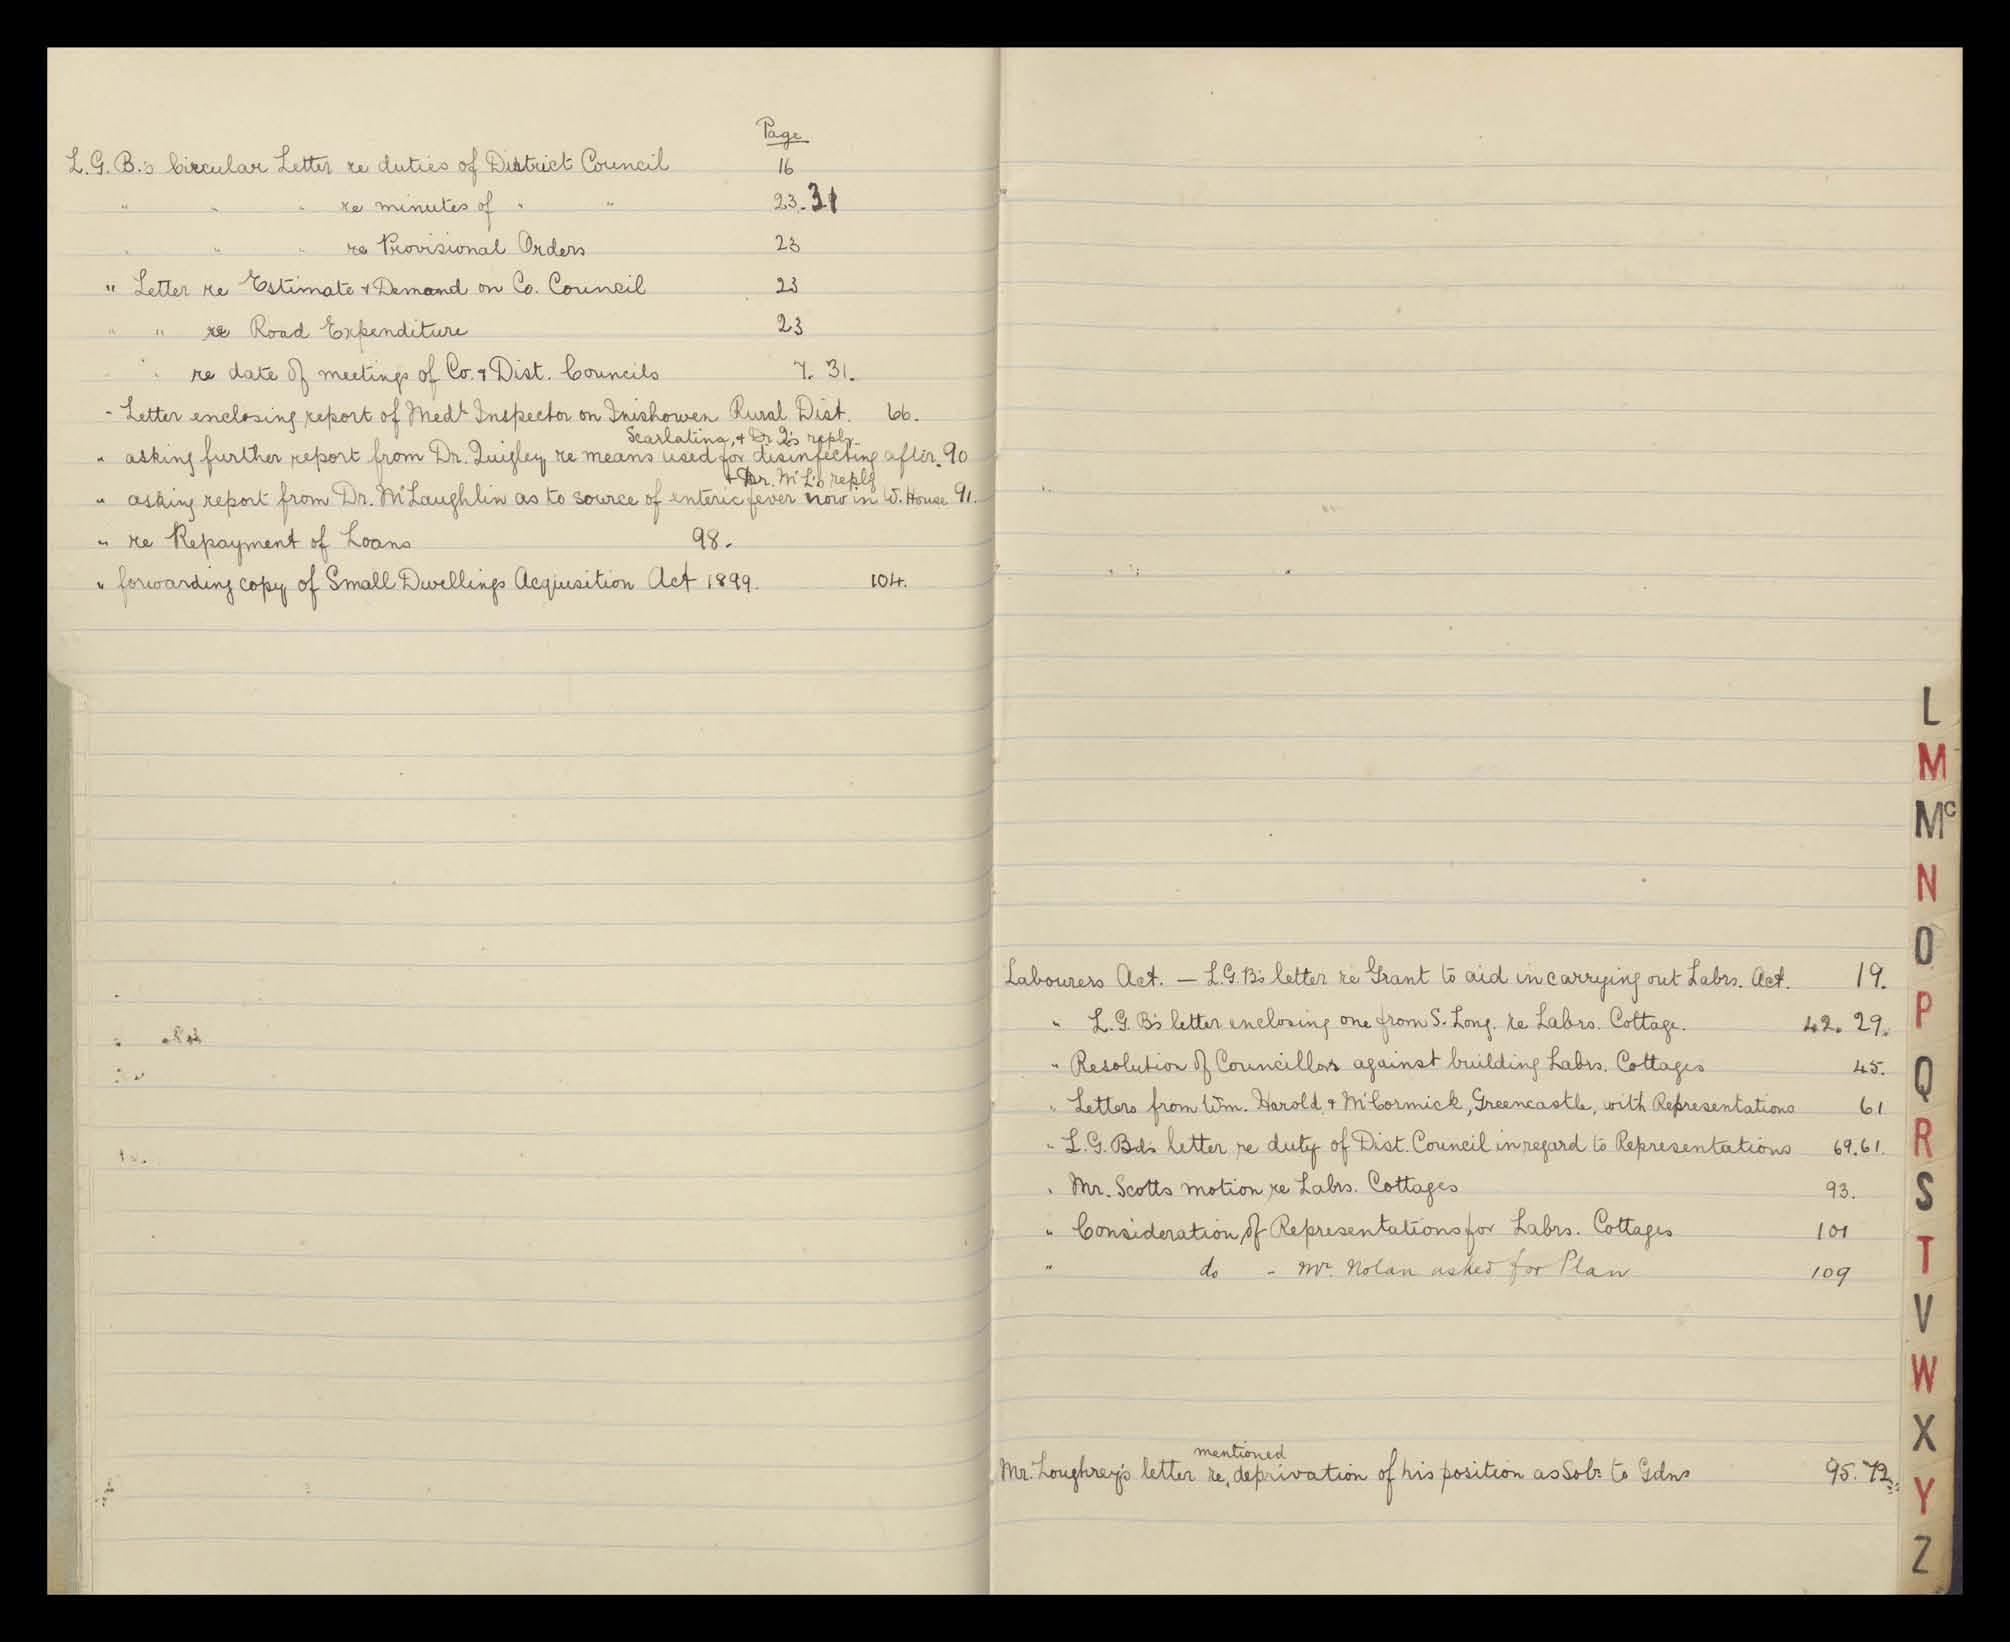 Page
L.G.B.'s Circular Letter re duties of District Council 16
" " " re minutes of " " 23. 31
" " " re Provisional Orders 23
" Letter re Estimate & Demand on Co. Council 23
" " re Road Expenditure 23
" " re date of meetings of Co. & Dist. Councils 7. 31.
" Letter enclosing report of Medl Inspector on Inishowen Rural Dist. 66.
Scarlatina, & Dr Q's reply.
" asking further report from Dr. Quigley re means used for disinfecting after. 90
& Dr. McL's reply
" asking report from Dr. McLaughlin as to source of enteric fever now in W. House 91.
" re Repayment of Loans 98.
" forwarding copy of Small Dwellings Acquisition Act 1899. 104.
Labourers Act. — L.G.B's letter re Grant to aid in carrying out Labrs. Act. 19.
" L.G.B's letter enclosing one from S. Long. re Labrs. Cottage. 42. 29.
" Resolution of Councillors against building Labrs. Cottages 45.
" Letters from Wm. Harold & McCormick, Greencastle, with Representations 61
" L.G.Bd's letter re duty of Dist. Council in regard to Representations 69. 61.
" Mr. Scotts motion re Labrs. Cottages 93.
" Consideration of Representations for Labrs. Cottages 101
" do - Mr. Nolan asked for Plan 109
mentioned
Mr. Loughrey's letter re, deprivation of his position as Solr to Gdns 95. 72.
L
M
Mc
N
O
P
Q
R
S
T
V
W
X
Y
Z